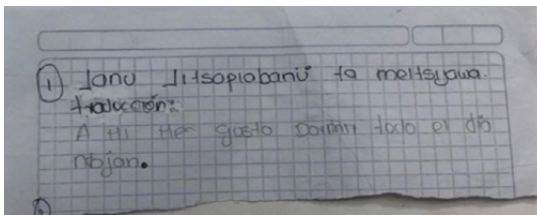 ① Janu Jitsopiobanu ta meltsyawa.
traducción:
A Mi Me gusto Dormir todo el dia
nojan.